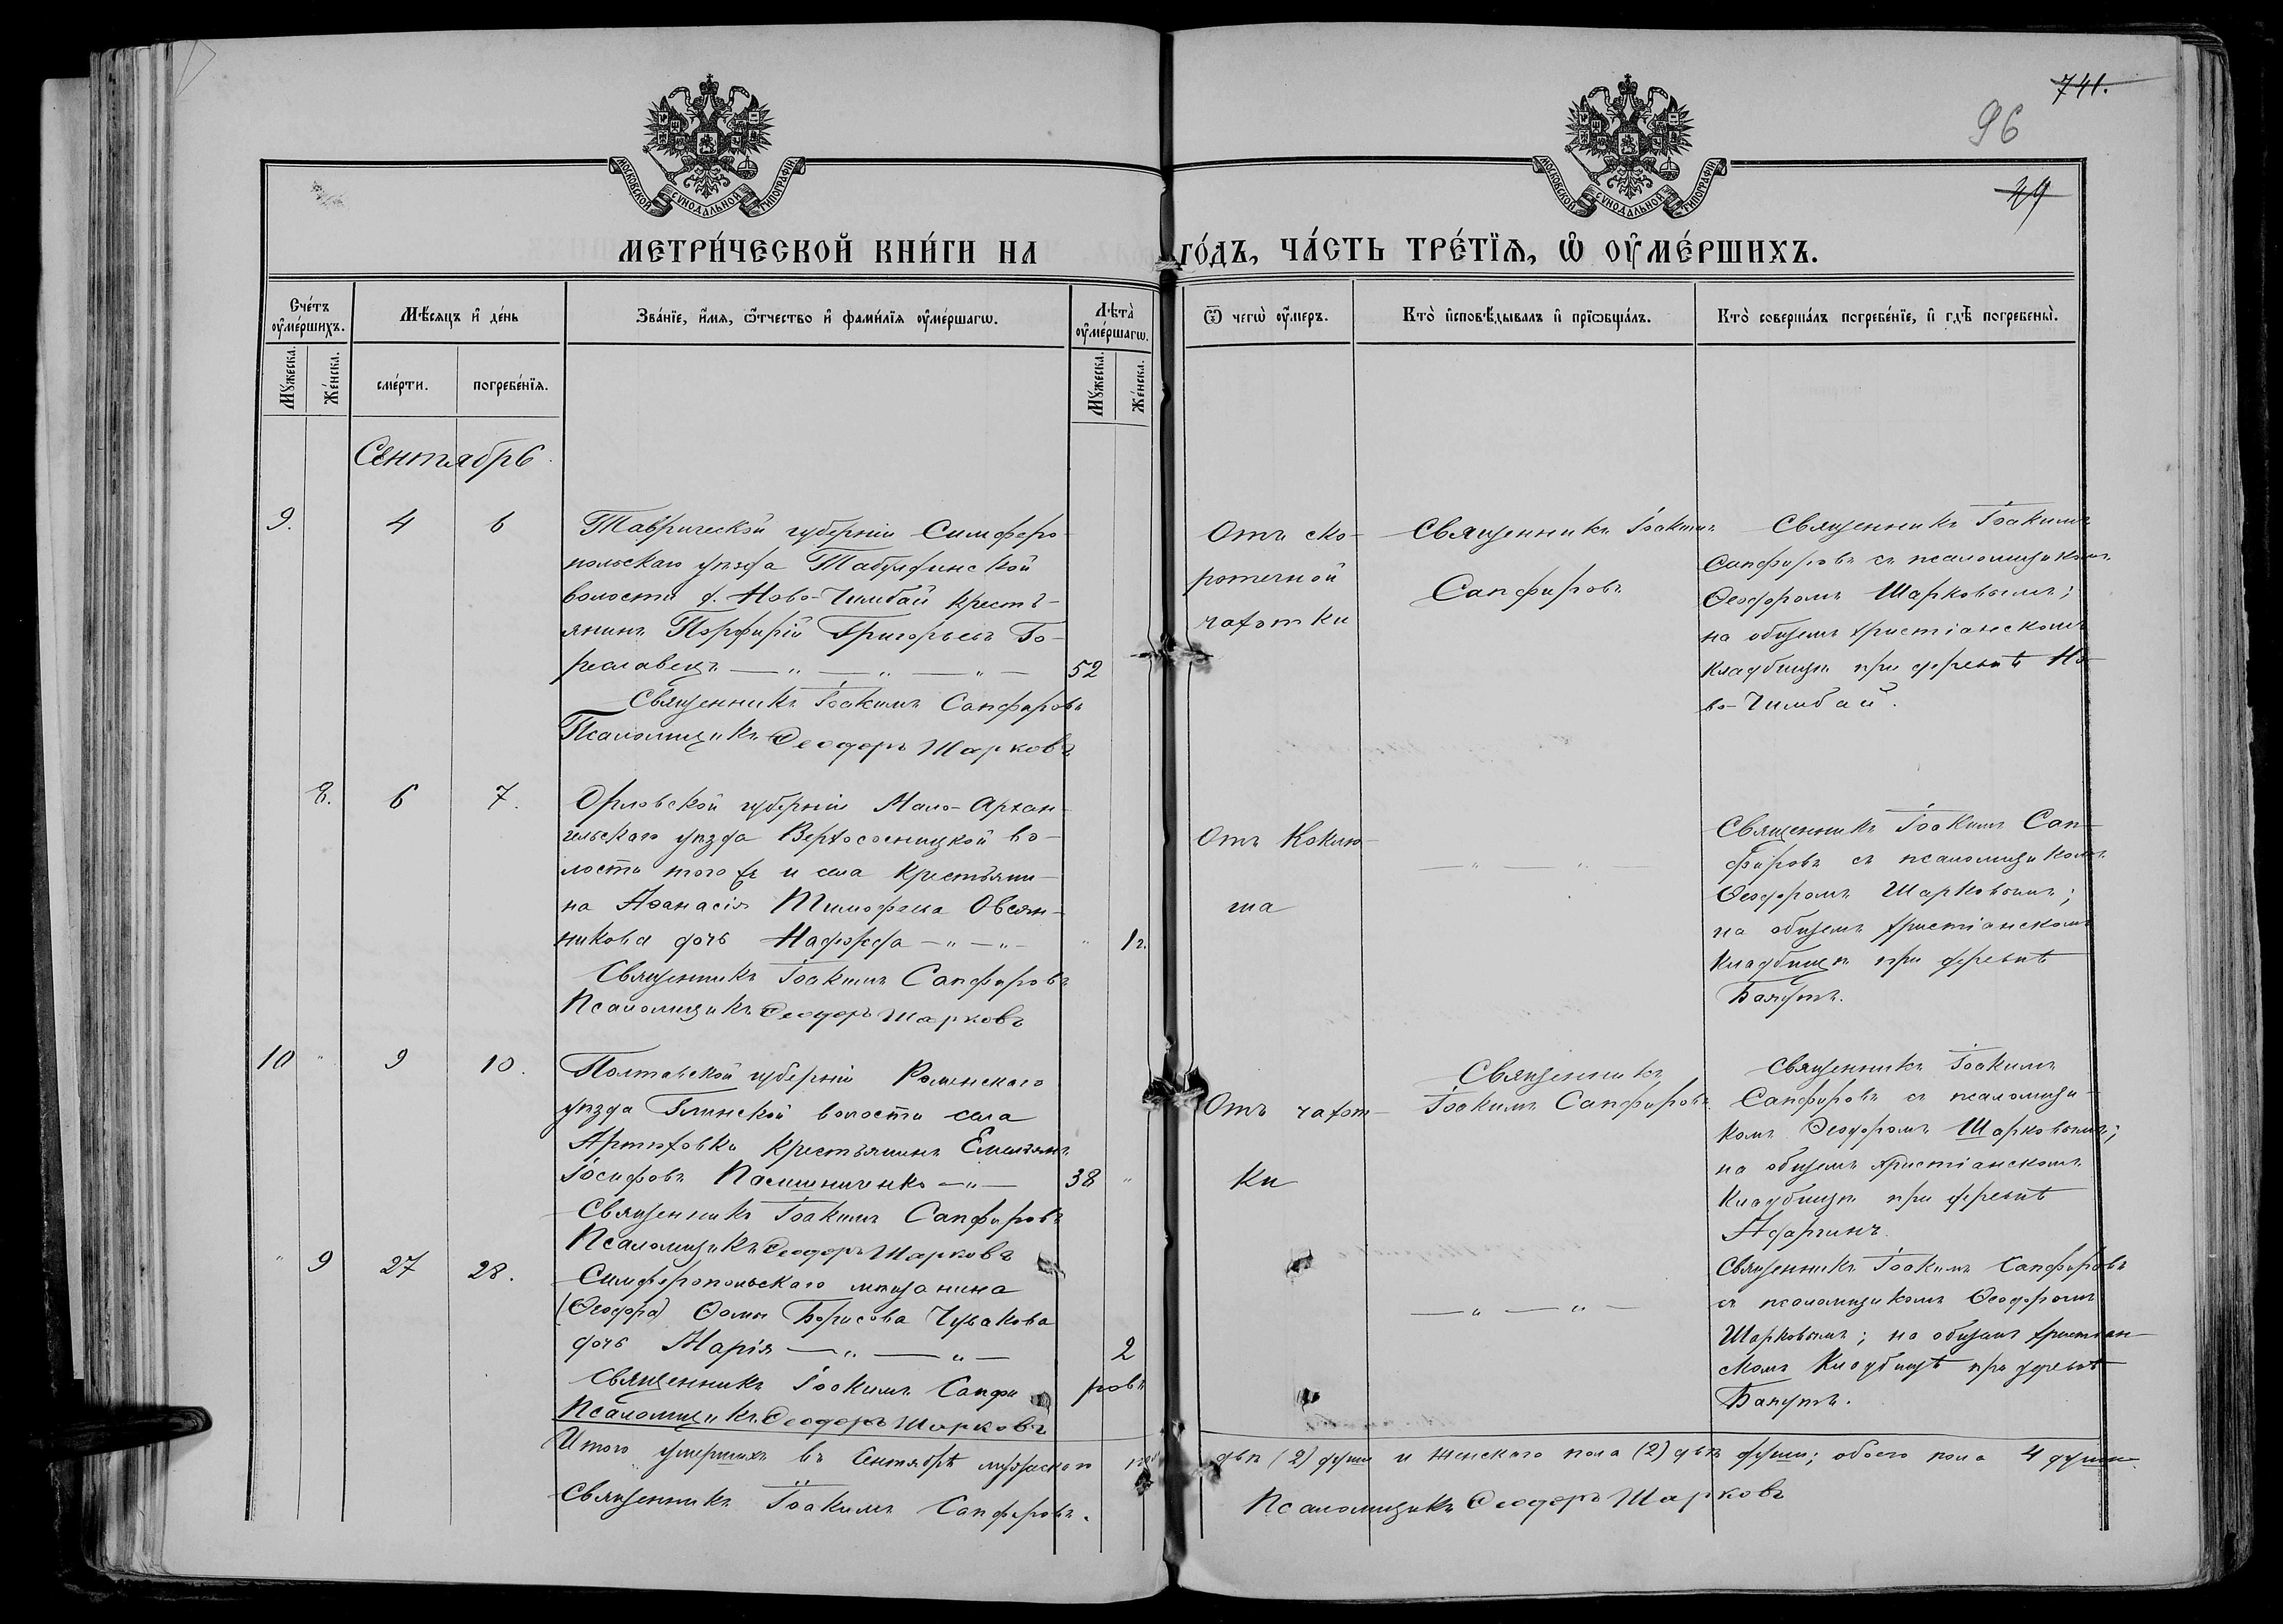 741.
96
29
МОСКОВСКОЙ СѴНОДАЛЬНОЙ ТИПОГРАФІИ
МОСКОВСКОЙ СѴНОДАЛЬНОЙ ТИПОГРАФІИ
МЕТРИ́ЧЕСКОЙ КНИ́ГИ НА ГО́ДЪ, ЧА́СТЬ ТРЕ́ТЇѦ, Ѡ҆ ОУ҆МЕ́РШИХЪ.
Сче́тъ оу҆ме́ршихъ.
Мѣ́сяцъ и҆ де́нь
Зва́нїе, и҆́мя, ѻ҆́тчество и҆ фами́лїя оу҆ме́ршагѡ.
Лѣ̀та оу҆ме́ршагѡ.
Ѿ чегѡ̀ оу҆́меръ.
Кто̀ и҆сповѣ́дывалъ и҆ прїѡбща́лъ.
Кто̀ соверша́лъ погребе́нїе, и҆ гдѣ̀ погребены̀.
Мꙋ́жеска.
Же́нска.
сме́рти.
погребе́нїя.
Мꙋ́жеска.
Же́нска.
Сентябрь
9. 4 6
Таврической губерніи Симферо-
польскаго уѣзда Табулдинской
волости д. Ново-Чимбай крестъ-
янинъ Порфирій Григорьевъ Бо-
реславецъ — „ — „ — „ — 52
Священникъ Іоакимъ Сапфировъ
Псаломщикъ Ѳеодоръ Шарковъ
Отъ ско-
ротечной
чахотки
Священникъ Іоакимъ
Сапфировъ
Священникъ Іоакимъ
Сапфировъ съ псаломщикомъ
Ѳеодоромъ Шарковымъ;
на общемъ христіанскомъ
кладбищѣ при деревнѣ Но-
во-Чимбай.
8. 6 7.
Орловской губерніи Мало-Архан-
гельскаго уѣзда Верхососницкой во-
лости того же и села крестьяни-
на Аѳанасія Тимофеева Овсян-
никова дочь Надежда — „ — „ — „ 1 г.
Священникъ Іоакимъ Сапфировъ
Псаломщикъ Ѳеодоръ Шарковъ
Отъ Коклю-
ша
— „ — „
Священникъ Іоакимъ Сап-
фировъ съ псаломщикомъ
Ѳеодоромъ Шарковымъ;
на общемъ христіанскомъ
кладбищѣ при деревнѣ
Баяутъ.
10 „ 9 10.
Полтавской губерніи Роменскаго
уѣзда Глинской волости села
Артюховки крестьянинъ Емельянъ
Іосифовъ Пасишниченко — „ — 38 „
Священникъ Іоакимъ Сапфировъ
Псаломщикъ Ѳеодоръ Шарковъ
Отъ чахот-
ки
Священникъ
Іоакимъ Сапфировъ
Священникъ Іоакимъ
Сапфировъ съ псаломщи-
комъ Ѳеодоромъ Шарковымъ;
на общемъ христіанскомъ
кладбищѣ при деревнѣ
Адаргинъ.
„ 9 27 28.
Симферопольскаго мѣщанина
(Ѳеодора) Ѳомы Борисова Чувакова
дочь Марія — „ — „ — 2
Священникъ Іоакимъ Сапфировъ
Псаломщикъ Ѳеодоръ Шарковъ
— „ — „ —
Священникъ Іоакимъ Сапфировъ
съ псаломщикомъ Ѳеодоромъ
Шарковымъ; на общемъ христіан-
скомъ кладбищѣ при деревнѣ
Баяутъ.
Итого умершихъ въ Сентябрѣ мужескаго пола двѣ (2) души и женскаго пола (2) двѣ души; обоего пола 4 души.
Священникъ Іоакимъ Сапфировъ.
Псаломщикъ Ѳеодоръ Шарковъ